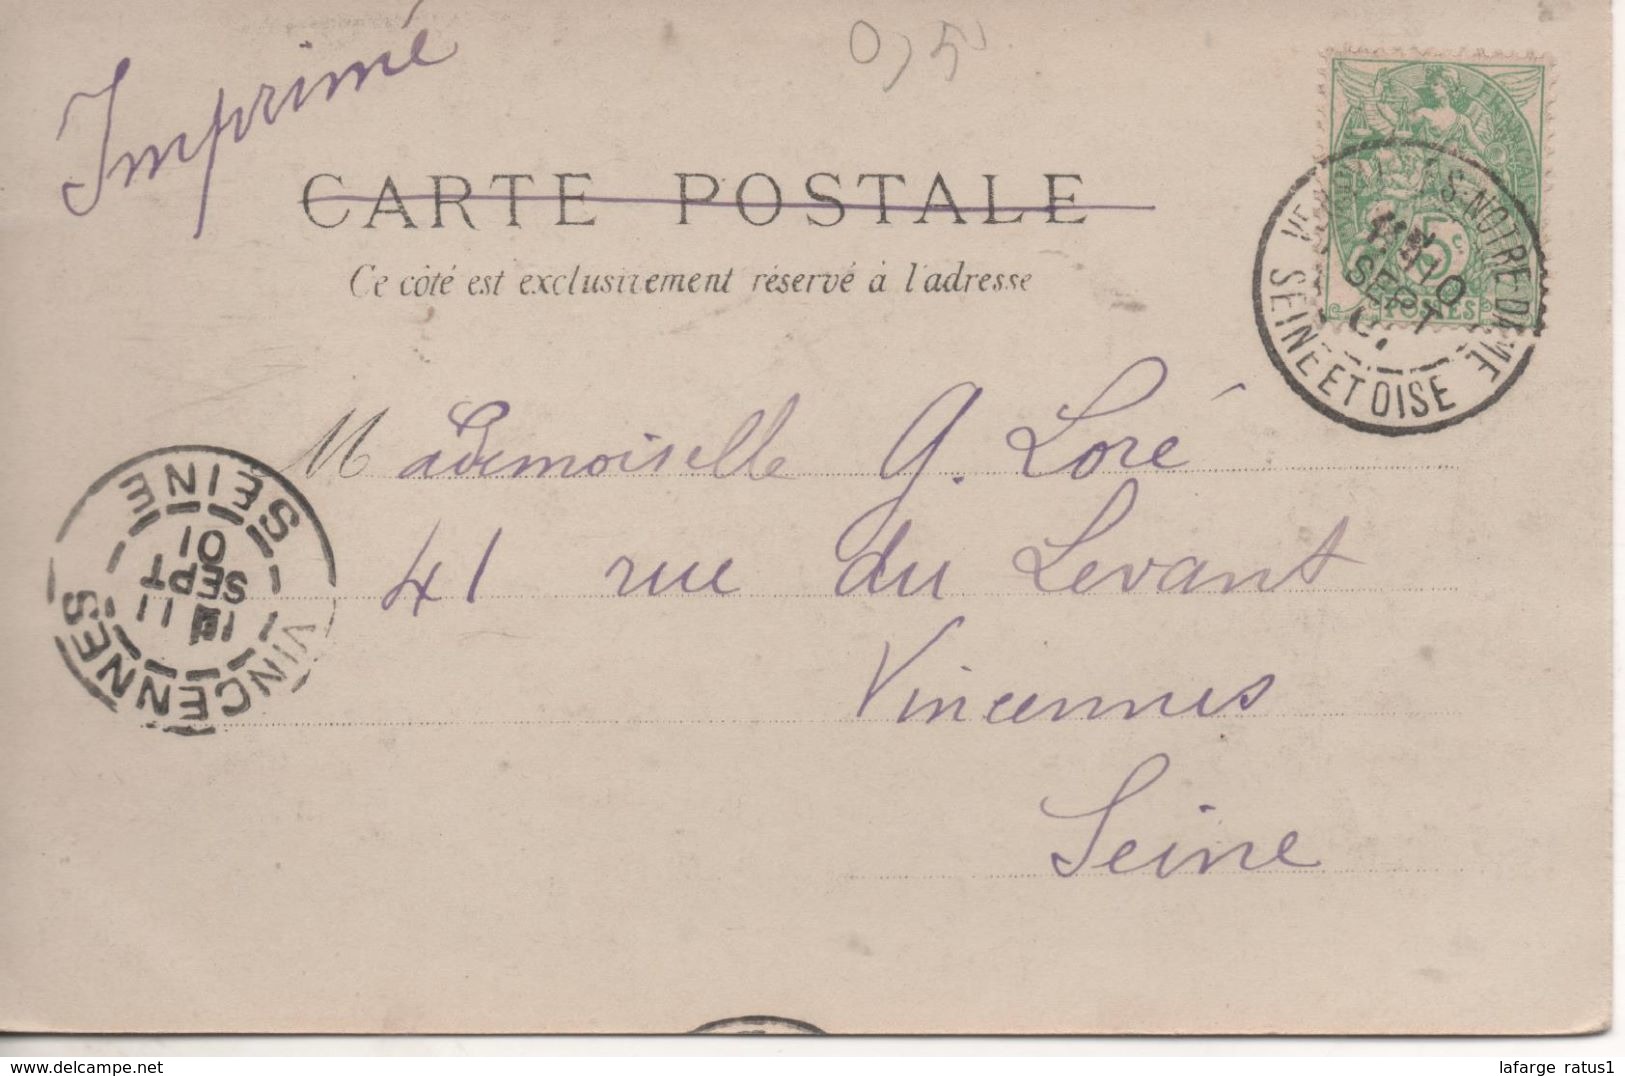 Imprimé
0,5
CARTE POSTALE
Ce côté est exclusivement réservé à l'adresse
5c
POSTES
VERSAILLES-NOTRE DAME
10
SEPT
SEINE ET OISE
Mademoiselle G. Loré
41 rue du Levant
Vincennes
Seine
VINCENNES
11
SEPT
01
SEINE
delcampe.net
lafarge ratus1